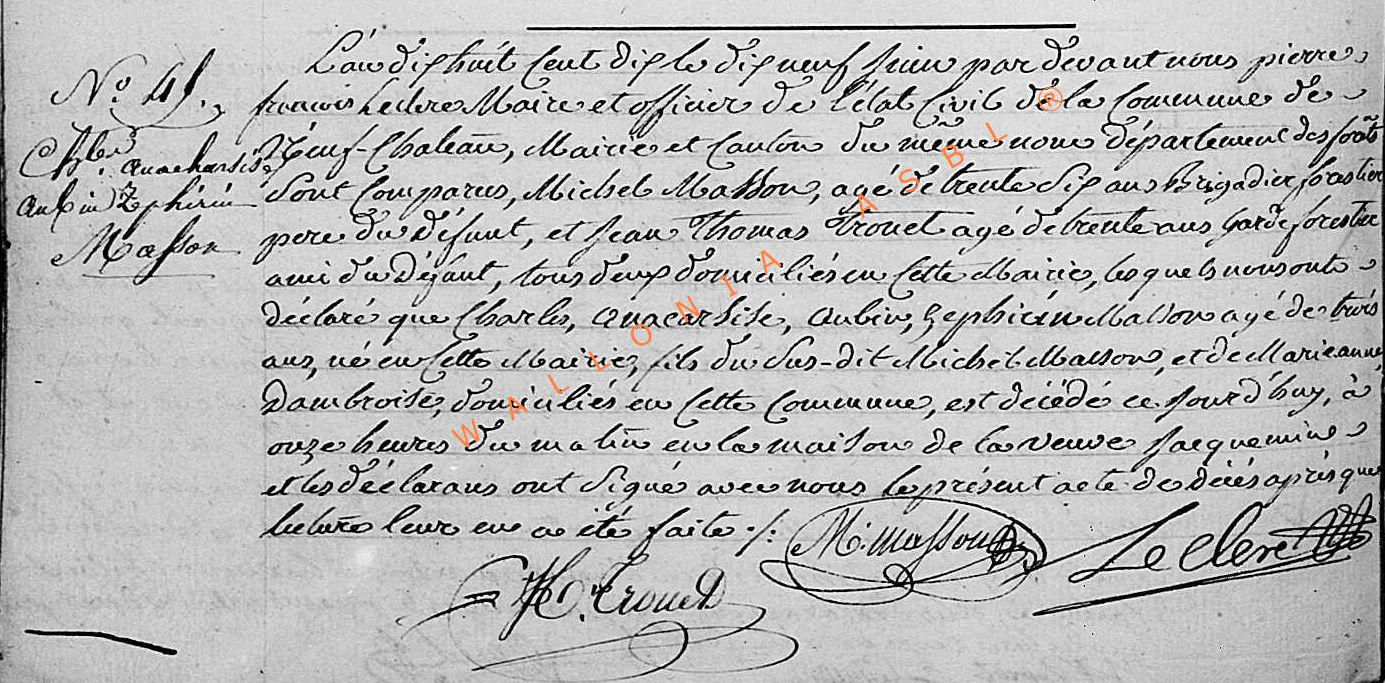 L'an dix huit cent dix le dix neuf juin par devant nous pierre
francois Leclerc Maire et officier de l'état Civil de la Commune de
Neuf-Chateau, Mairie et Canton du même nom département des forêts
Sont Comparus, Michel Masson, agé de trente Six ans Brigadier forestier
pere du défunt, et Jean Thomas Trouet agé de trente ans garde forestier
ami du Défunt, tous deux domiciliés en Cette Mairie, lesquels nous ont
déclaré que Charles, anacarsise, aubin, Zephirin Masson agé de trois
ans, né en Cette Mairie, fils du Sus-dit Michel Masson, et de Marie anne
Dambroise, domiciliés en Cette Commune, est décédé ce Jourd'huy, à
onze heures du matin en la maison de la veuve Jacquemin
et les déclarans ont Signé avec nous le présent acte de décés après que
lecture leur en a été faite ./.
M. masson
Leclerc
Trouet
No. 41.
Chles. anacharsis
aubin Zéphirin
Masson
WALLONIA ASBL ®